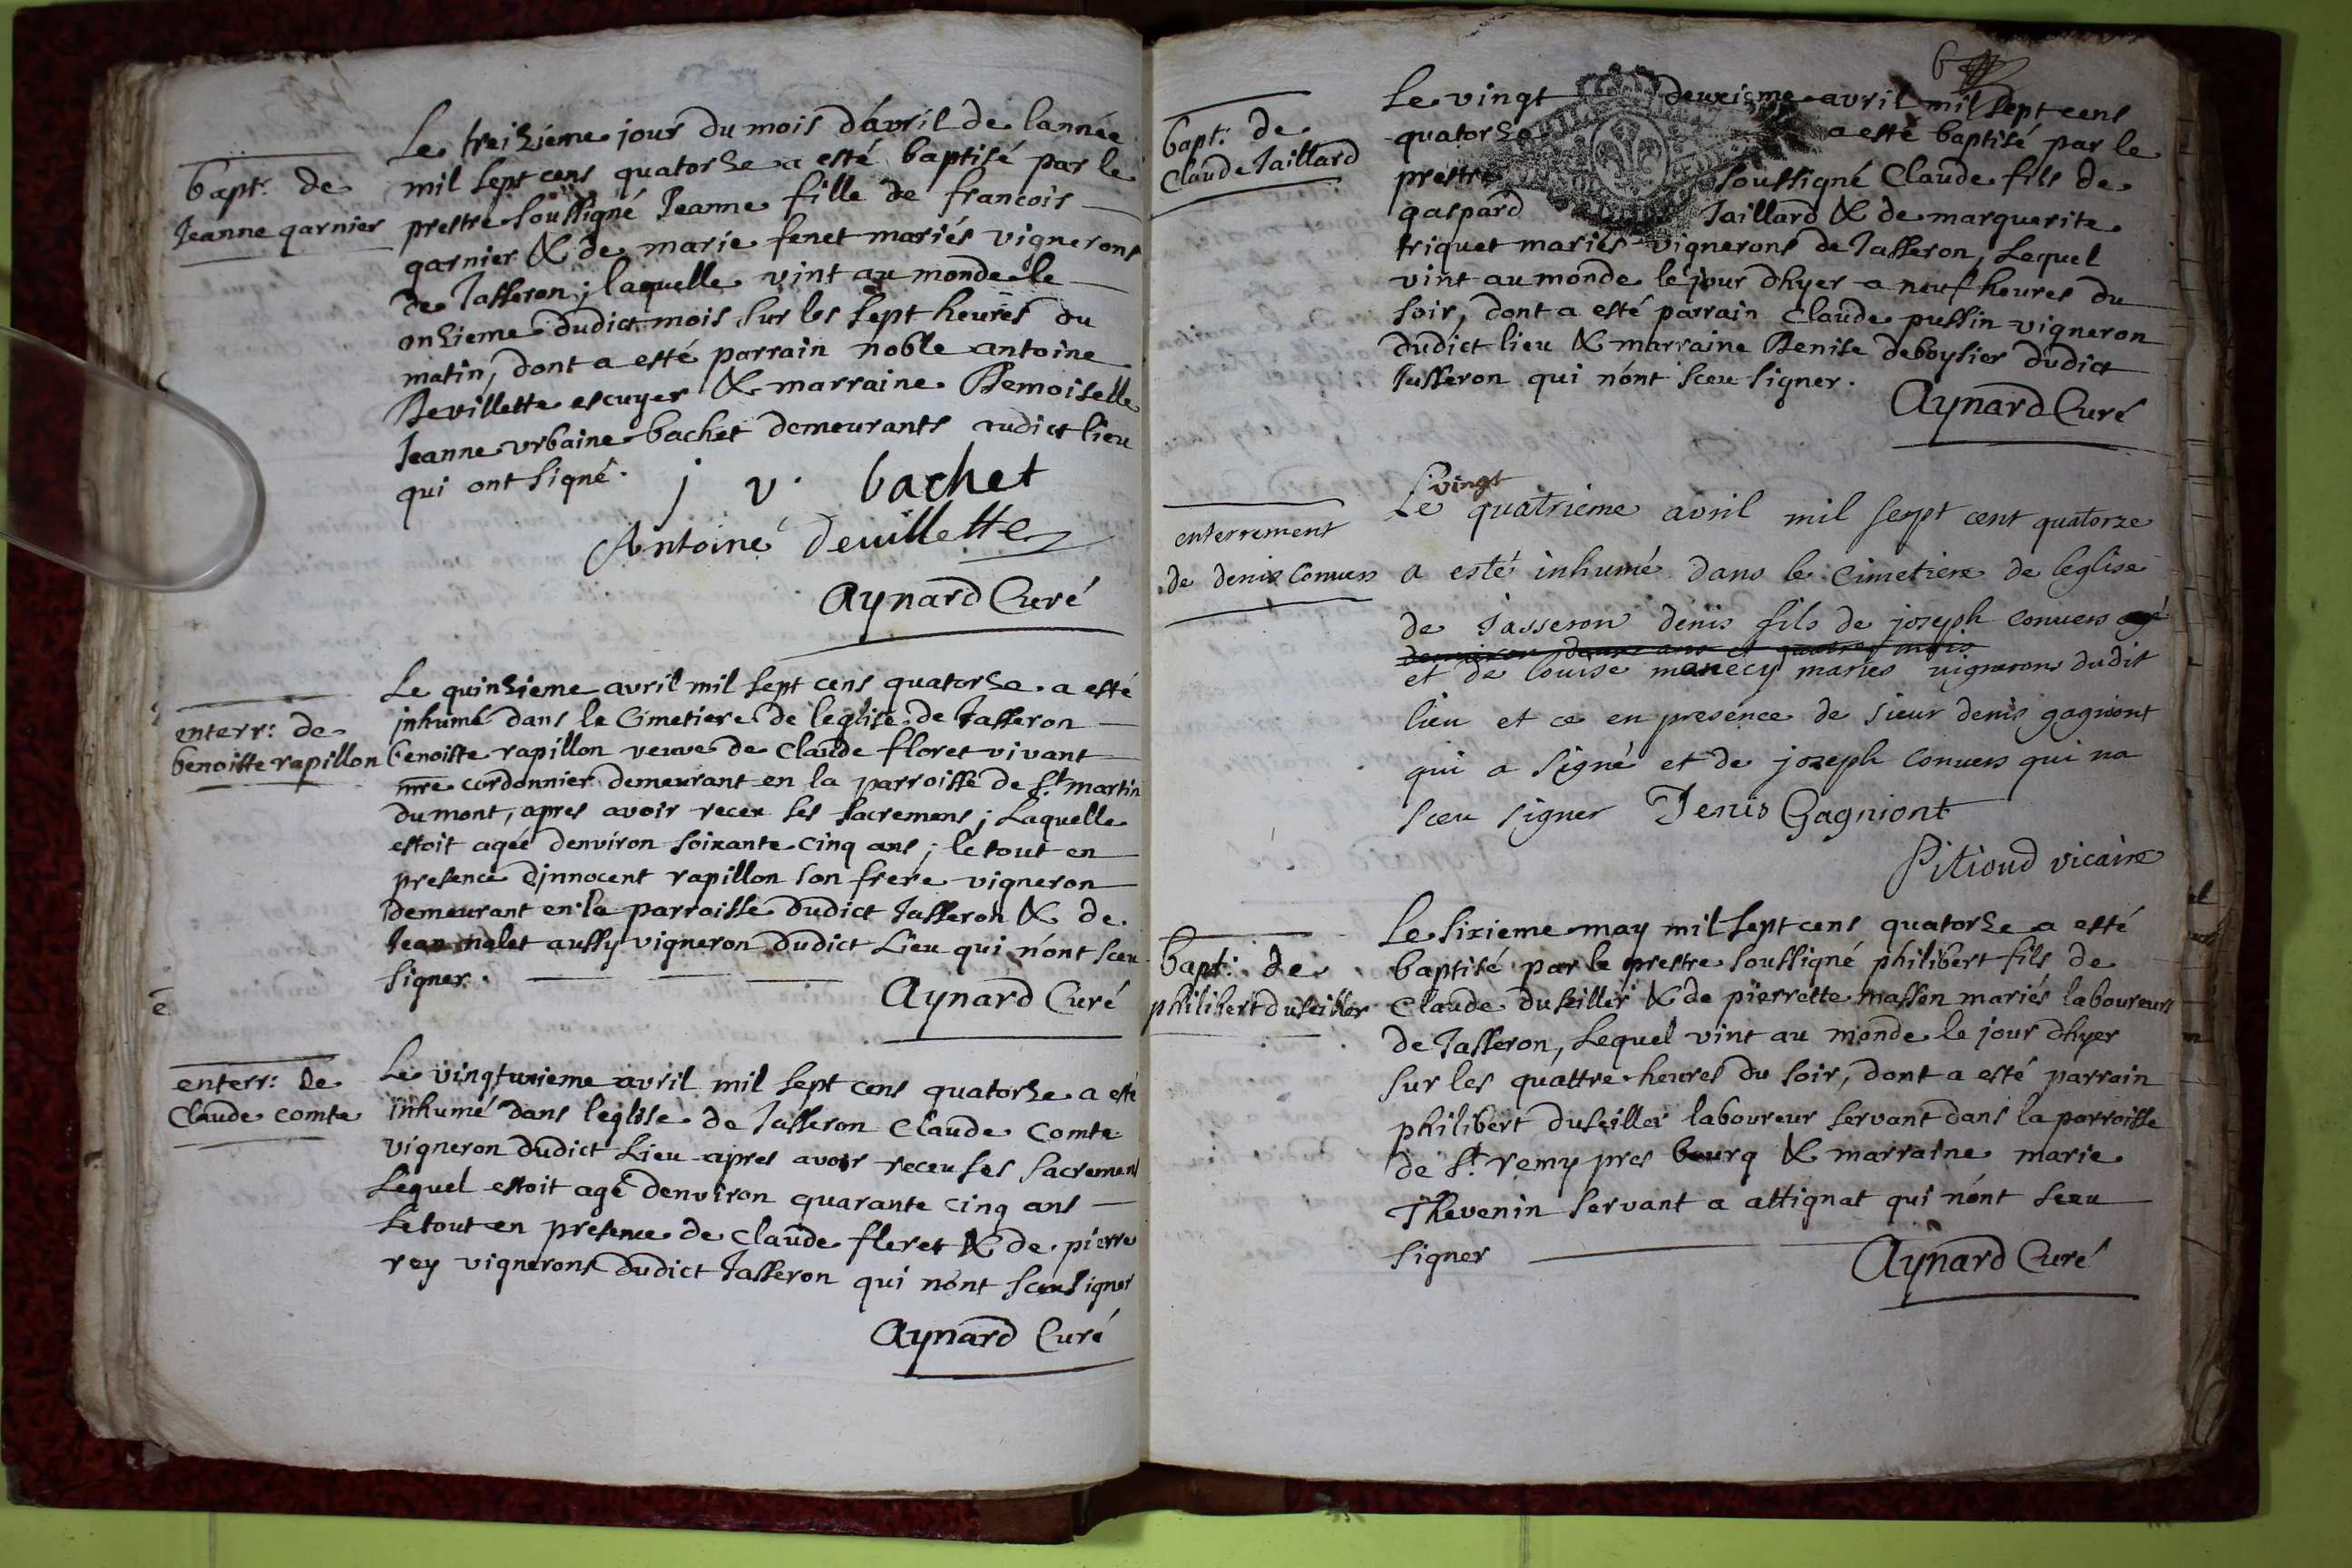 bapt: de
Jeanne garnier
Le treizieme jour du mois d'avril de lannée
mil sept cens quatorze a esté baptisé par le
prestre soussigné Jeanne fille de francois
garnier & de marie fenet mariés vignerons
de Jasseron; laquelle vint au monde le
onzieme dudict mois sur les sept heures du
matin, dont a esté parrain noble antoine
Devillette escuyer & marraine Demoiselle
Jeanne urbaine bachet demeurants audict lieu
qui ont signé.
j v. bachet
Antoine Deuillette
Aynard Curé
enterr: de
benoiste rapillon
Le quinzieme avril mil sept cens quatorze a esté
inhumé dans le Cimetiere de leglise de Jasseron
benoiste rapillon veuve de Claude floret vivant
mre cordonnier demeurant en la parroisse de st martin
du mont, apres avoir receu ses sacremens; Laquelle
estoit agée denviron soixante cinq ans; le tout en
presence dinnocent rapillon son frere vigneron
demeurant en la parroisse dudict Jasseron & de
Jean malet aussy vigneron dudict Lieu qui n'ont sceu
signer.
Aynard Curé
enterr: de
Claude comte
Le vingtunieme avril mil sept cens quatorze a esté
inhumé dans leglise de Jasseron Claude Comte
vigneron dudict Lieu apres avoir receu ses sacremens
Lequel estoit agé denviron quarante cinq ans
Le tout en presence de Claude floret & de pierre
rey vignerons dudict Jasseron qui n'ont sceu signer
Aynard Curé
6
bapt: de
Claude Jaillard
Le vingt deuxieme avril mil sept cens
quatorze a esté baptisé par le
prestre soussigné Claude fils de
gaspard Jaillard & de marguerite
triquet mariés vignerons de Jasseron, Lequel
vint au monde le jour dhyer a neuf heures du
soir, dont a esté parrain Claude pussin vigneron
dudict lieu & marraine Denise deboysier dudict
Jasseron qui n'ont sceu signer.
Aynard Curé
enterrement
de denis Convers
vingt
Le quatrieme avril mil sept cent quatorze
a esté inhumé dans le Cimetiere de leglise
de Jasseron denis fils de joseph convers agé
denviron deux ans et quatre mois
et de louise manecy mariés vignerons dudit
lieu et ce en presence de sieur denis gagniont
qui a signé et de joseph Convers qui na
sceu signer Denis Gagniont
Pitioud vicaire
bapt: de
philibert duseiller
Le sixieme may mil sept cens quatorze a esté
baptisé par le prestre soussigné philibert fils de
Claude duseiller & de pierrette masson mariés laboureurs
de Jasseron, Lequel vint au monde le jour dhyer
sur les quattre heures du soir, dont a esté parrain
philibert duseiller laboureur servant dans la parroisse
de st remy pres bourg & marraine marie
Thevenin servant a attignat qui n'ont sceu
signer
Aynard Curé